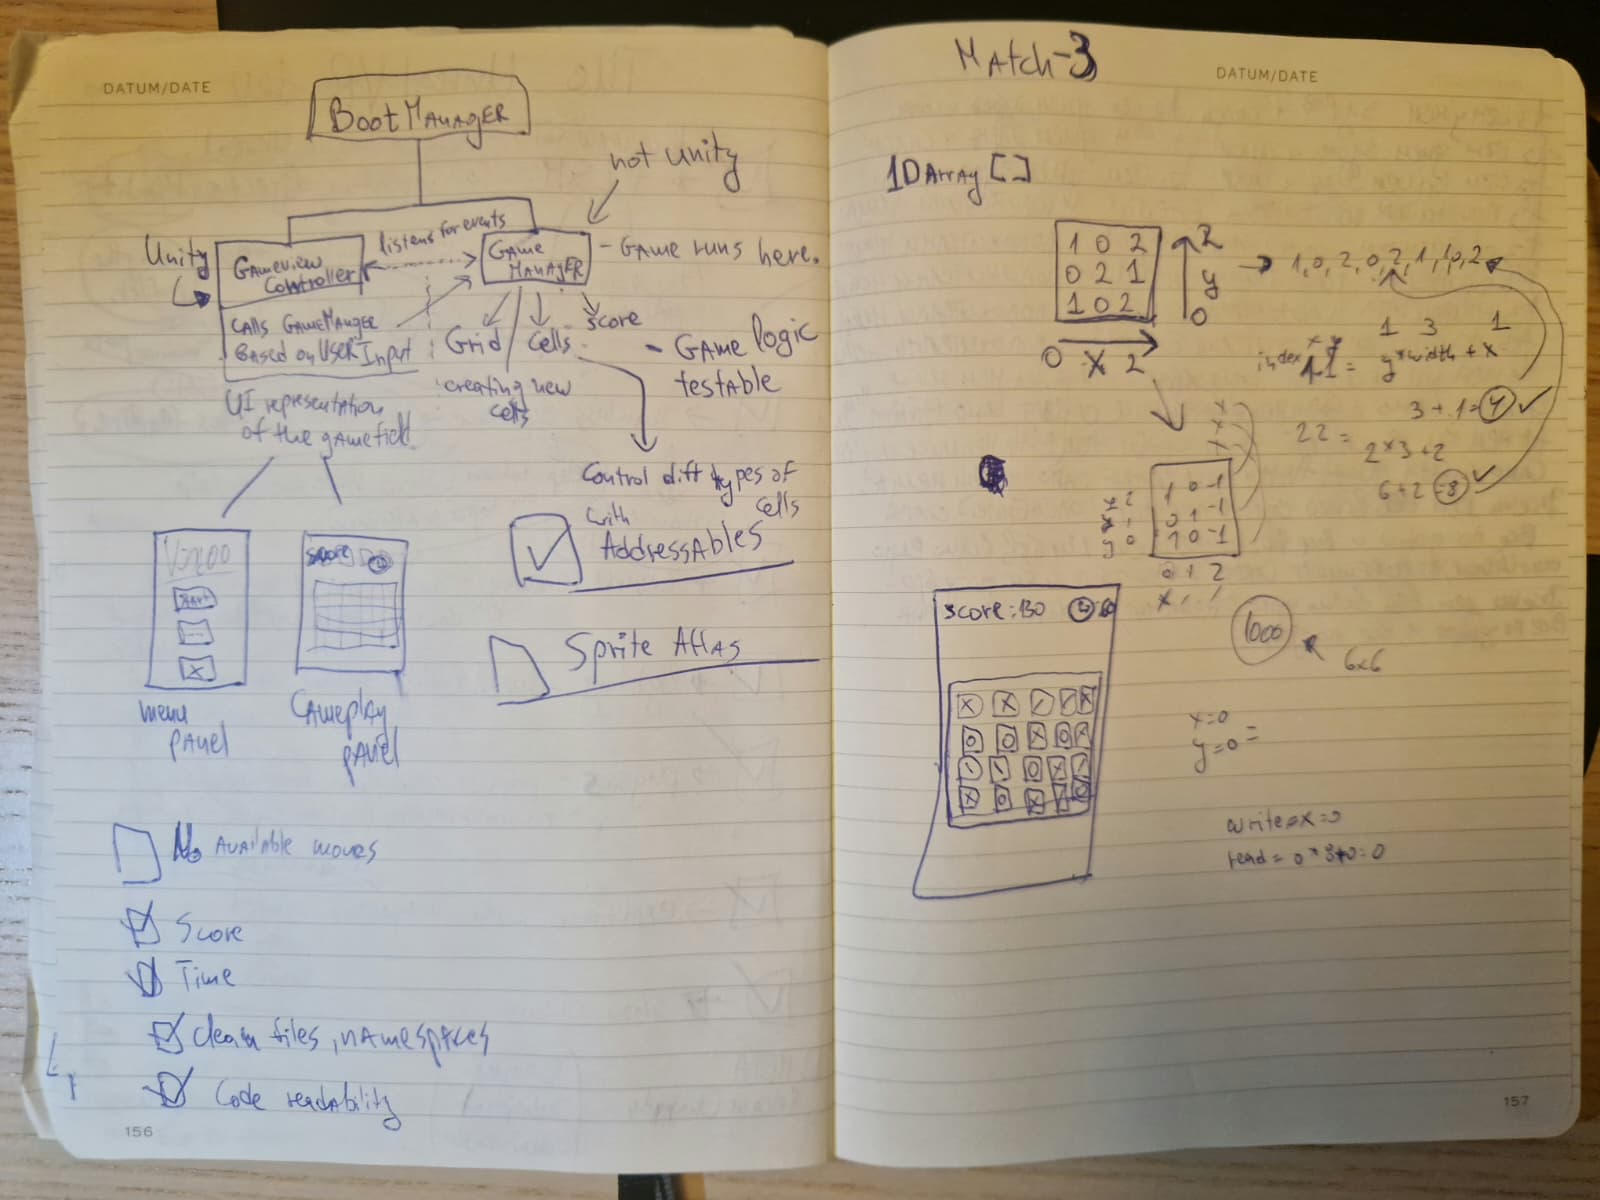 DATUM/DATE
BootManager
not Unity
Unity
Gameview
Controller
listens for events
Game
Manager
- Game runs here.
calls GameManger
Based on User Input
Grid
Cells
score
creating new
cells
- Game logic
testable
UI representation
of the gamefield
Control diff types of
cells
with
Addressables
Sprite Atlas
Start
X
score
menu
panel
Gameplay
panel
No Available moves
Score
Time
Clean files, namespaces
Code readability
156
Match-3
DATUM/DATE
1D Array []
1 0 2
0 2 1
1 0 2
2
y
0
0 x 2
1, 0, 2, 0, 2, 1, 1, 0, 2
1 3 1
x y
index 11 = y*width + x
3 + 1 = 4
22 =
2*3+2
6+2=8
x
x
x
1 0 -1
0 1 -1
1 0 -1
0 1 2
score: 130
1000
6x6
x=0
y=0 =
X X / / X
O O X O X
/ / O X /
X O X / O
write x=0
read = 0*3+0=0
157